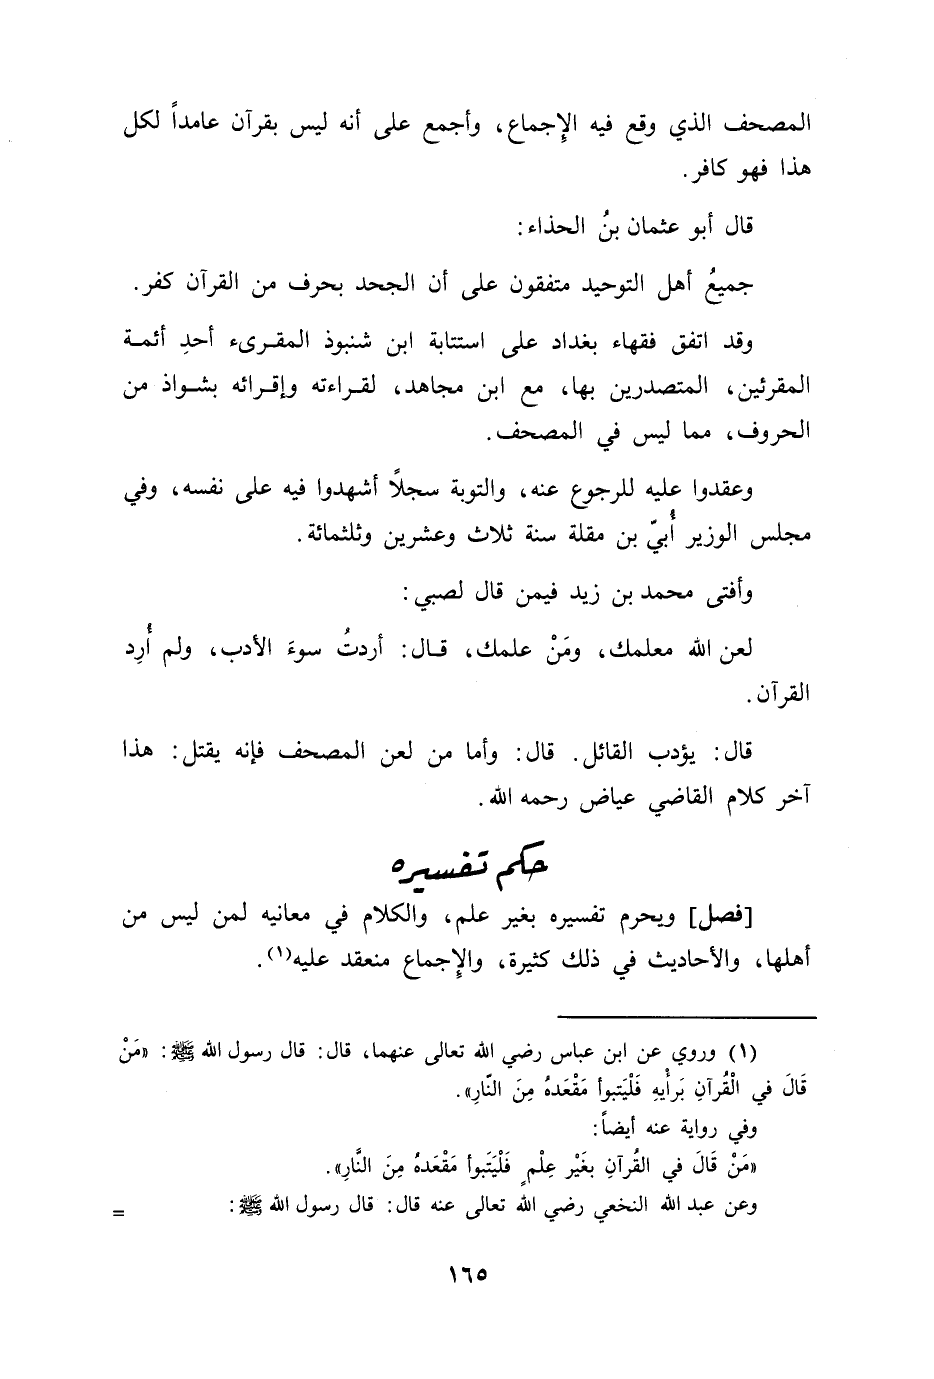 المصحف الذي وقع فيه الإِجماع، وأجمع على أنه ليس بقرآن عامداً لكل
هذا فهو كافر.
قال أبو عثمان بنُ الحذاء:
جميعُ أهل التوحيد متفقون على أن الجحد بحرف من القرآن كفر.
وقد اتفق فقهاء بغداد على استتابة ابن شنبوذ المقرىء أحدِ أئمة
المقرئين، المتصدرين بها، مع ابن مجاهد، لقراءته وإقرائه بشواذ من
الحروف، مما ليس في المصحف.
وعقدوا عليه للرجوع عنه، والتوبة سجلاً أشهدوا فيه على نفسه، وفي
مجلس الوزير أُبيّ بن مقلة سنة ثلاث وعشرين وثلثمائة.
وأفتى محمد بن زيد فيمن قال لصبي:
لعن الله معلمك، ومَنْ علمك، قال: أردتُ سوءَ الأدب، ولم أُرِد
القرآن.
قال: يؤدب القائل. قال: وأما من لعن المصحف فإنه يقتل: هذا
آخر كلام القاضي عياض رحمه الله.
حكم تفسيره
[فصل] ويحرم تفسيره بغير علم، والكلام في معانيه لمن ليس من
أهلها، والأحاديث في ذلك كثيرة، والإِجماع منعقد عليه(١).
(١) وروي عن ابن عباس رضي الله تعالى عنهما، قال: قال رسول الله ﷺ: «مَنْ
قَالَ في الْقُرآنِ بَرأْيهِ فَلْيَتبوأ مَقْعَدهُ مِنَ النّارِ».
وفي رواية عنه أيضاً:
«مَنْ قَالَ في القُرآنِ بغَيْر عِلْمٍ فَلْيَتَبوأ مَقْعَدهُ مِنَ النَّارِ».
وعن عبد الله النخعي رضي الله تعالى عنه قال: قال رسول الله ﷺ: =
١٦٥